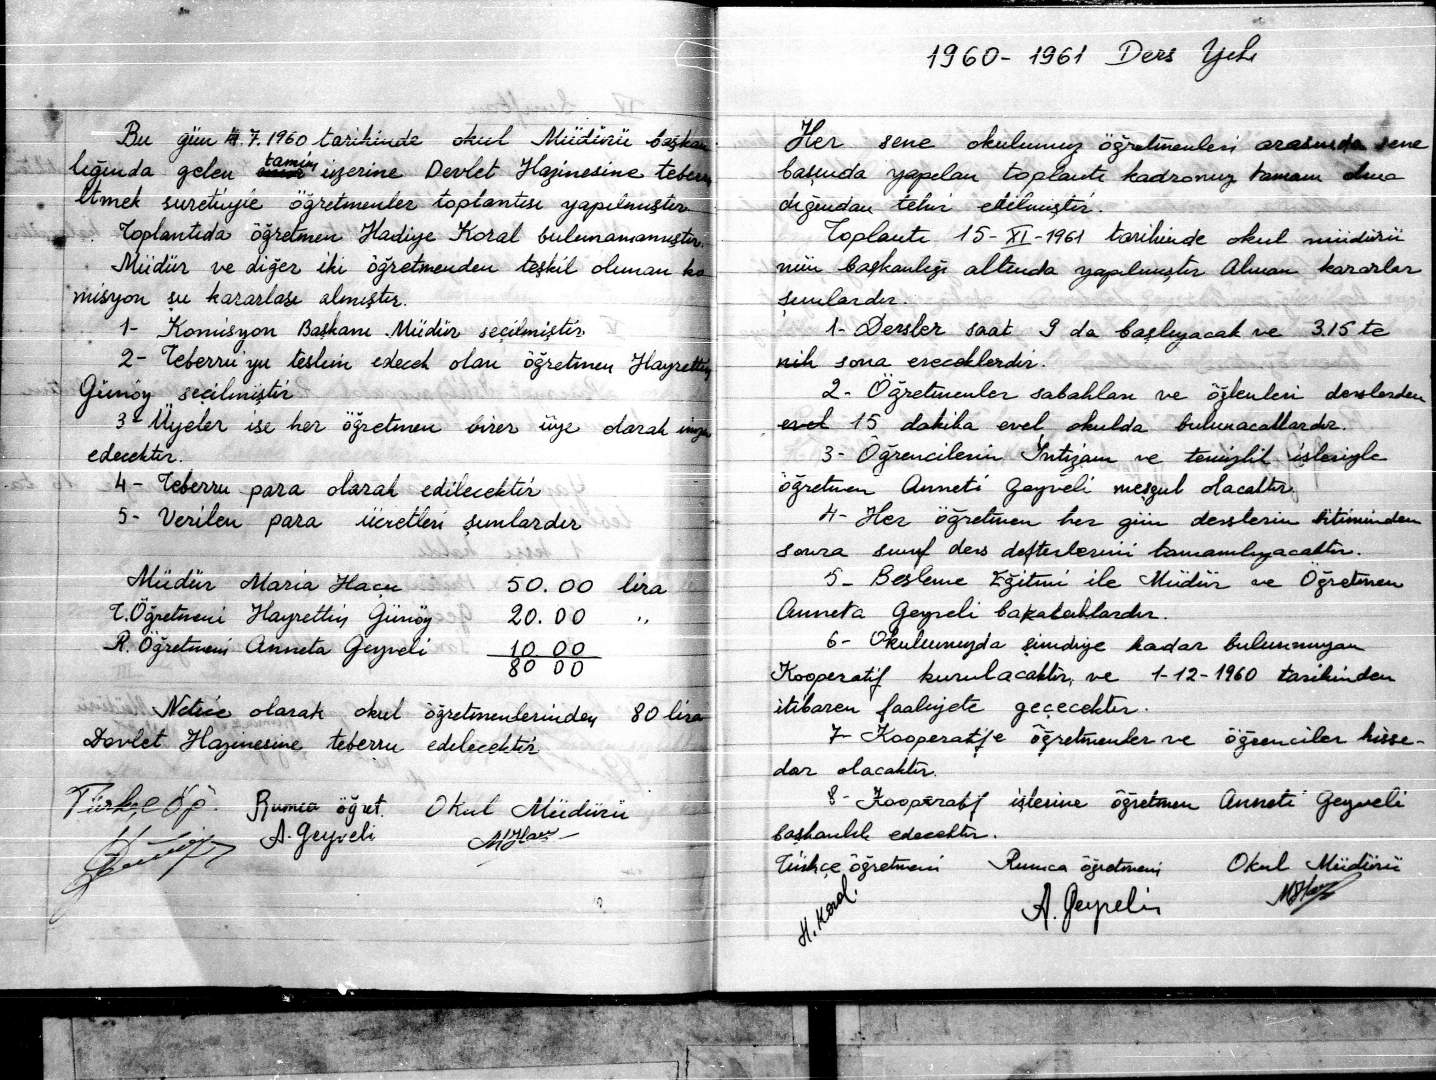 Bu gün 4.7.1960 tarihinde okul Müdürü başkan
lığında gelen tamim üzerine Devlet Hazinesine teberru
Etmek suretiyle öğretmenler toplantısı yapılmıştır.
Toplantıda öğretmen Hadiye Koral bulunamamıştır.
Müdür ve diğer iki öğretmenden teşkil olunan ko
misyon şu kararları almıştır.
1- Komisyon Başkanı Müdür seçilmiştir
2- Teberru'yu teslim edecek olan öğretmen Hayrettin
Günöy seçilmiştir
3- Üyeler ise her öğretmen birer üye olarak imza
edecektir.
4- Teberru para olarak edilecektir
5- Verilen para ücretleri şunlardır
Müdür Maria Haçu 50.00 lira
T.Öğretmeni Hayrettin Günöy 20.00 ,,
R. Öğretmeni Anneta Geyveli 10 00
80 00
Netice olarak okul öğretmenlerinden 80 lira
Devlet Hazinesine teberru edilecektir
Türkçe Öğ. Rumca öğret. Okul Müdürü
A. Geyveli
1960-1961 Ders Yılı
Her sene okulumuz öğretmenleri arasında sene
başında yapılan toplantı kadromuz tamam olma
dığından tehir edilmiştir.
Toplantı 15-XI-1961 tarihinde okul müdürü
nün başkanlığı altında yapılmıştır Alınan kararlar
şunlardır.
1- Dersler saat 9 da başlıyacak ve 3.15 te
nih sona ereceklerdir.
2- Öğretmenler sabahları ve öğlenleri derslerden
evel 15 dakika evel okulda bulunacaklardır.
3- Öğrencilerin İntizam ve temizlik işleriyle
öğretmen Anneti Geyveli meşgul olacaktır
4- Her öğretmen her gün derslerin bitiminden
sonra sınıf ders defterlerini tamamlıyacaktır.
5- Besleme Eğitimi ile Müdür ve Öğretmen
Anneta Geyveli bakacaklardır.
6- Okulumuzda şimdiye kadar bulunmıyan
Kooperatif kurulacaktır, ve 1-12-1960 tarihinden
itibaren faaliyete geçecektir.
7- Kooperatife öğretmenler ve öğrenciler hisse-
dar olacaktır.
8- Kooperatif işlerine öğretmen Anneti Geyveli
başkanlık edecektir.
Türkçe öğretmeni Rumca öğretmeni Okul Müdürü
H. Koral. A. Geyveli